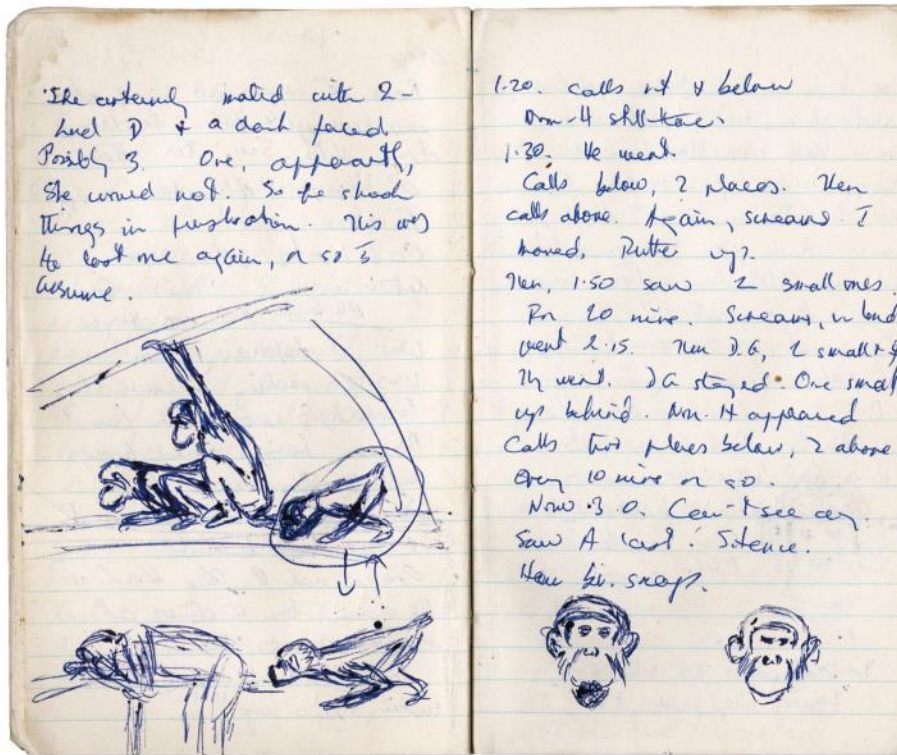 She certainly mated with 2 -
and D + a dark faced.
Possibly 3. One apparently,
she would not. So he shook
things in frustration. This was
the last one again, or so I
assume.
1.20. Calls rt & below
4 still there.
1.30. He went.
Calls below, 2 places. Then
calls above. Again, screams I
moved. Better up?
Then, 1.50 saw 2 small ones.
For 20 mins. Screams,
went 2.15. Then D.G, 2 small +
They went. DG stayed. One small
up behind. Non. H appeared
Calls two places below, 2 above
Every 10 mins or so.
Now 3 0. Can't see any.
Saw A last. Silence.
Have snap.